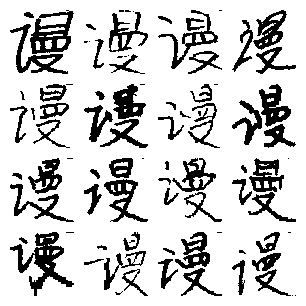 谩谩谩谩
谩谩谩谩
谩谩谩谩
谩谩谩谩